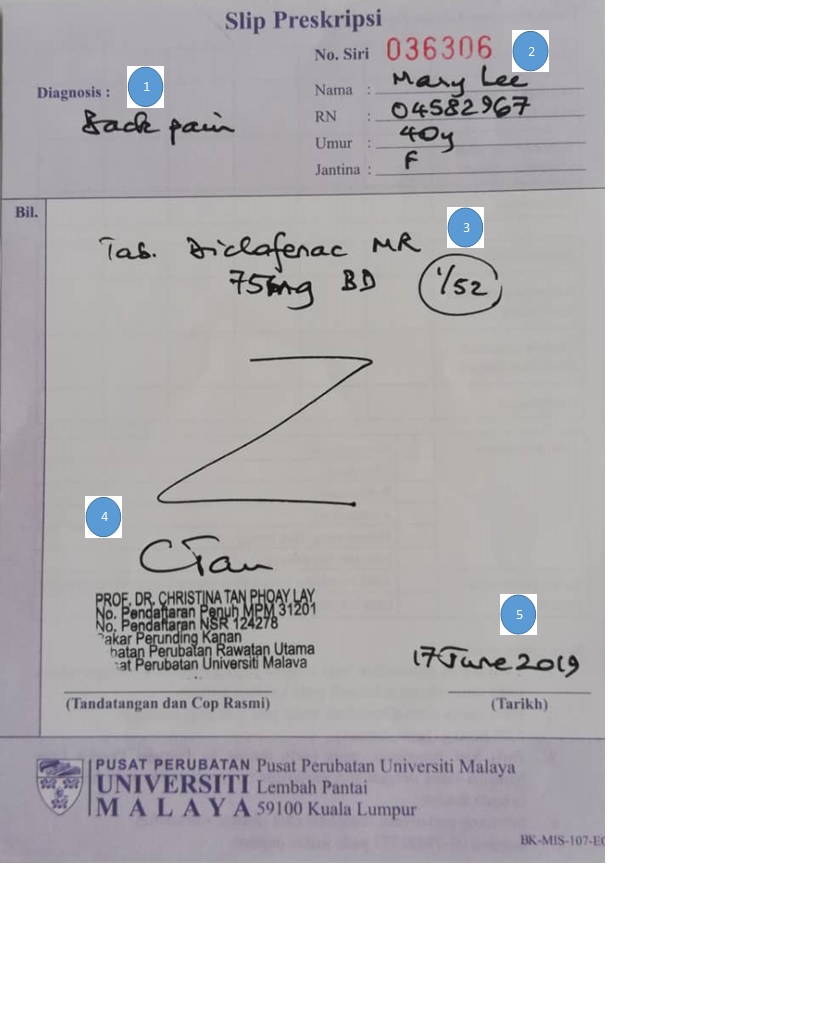 Slip Preskripsi
No. Siri 036306 2
1
Diagnosis :
Back pain
Nama : Mary Lee
RN : 04582967
Umur : 40y
Jantina : F
Bil.
3
Tab. Diclofenac MR
75mg BD 1/52
Z
4
CTan
PROF. DR. CHRISTINA TAN PHOAY LAY
No. Pendaftaran Penuh MPM 31201
No. Pendaftaran NSR 124278
Pakar Perunding Kanan
batan Perubatan Rawatan Utama
at Perubatan Universiti Malaya
(Tandatangan dan Cop Rasmi)
5
17 June 2019
(Tarikh)
PUSAT PERUBATAN
UNIVERSITI
MALAYA
Pusat Perubatan Universiti Malaya
Lembah Pantai
59100 Kuala Lumpur
BK-MIS-107-E